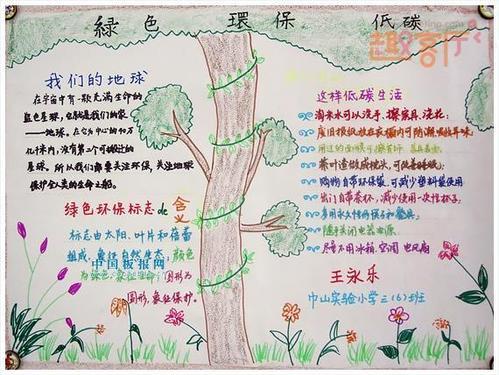 綠色 環保 低碳
趣客厅
我们的地球
在宇宙中有一颗充满生命的
蓝色星球，也就是我们的家
——地球。在它为中心的40万
亿千米内，没有第二个可栖迁的
星球。所以我们都要关注环保，关注地球
保护全人类的生命之船。
绿色环保标志de含义
标志由太阳、叶片和蓓蕾
组成，象征自然生态；颜色
为绿色，象征生命；图形为
圆形，象征保护。
中国板报网
这样低碳生活
淘米水可以洗手、擦家具、浇花；
废旧报纸放在衣橱内可防潮、吸收异味；
用过的面膜可
茶叶渣做成枕头，可改善睡眠；
购物自带环保袋，可减少塑料袋使用
出门自带茶杯，减少使用一次性杯子；
多用永久性的筷子和餐具
随手关闭电器电源
尽量不用冰箱、空调、电风扇
王永乐
中山实验小学三(6)班